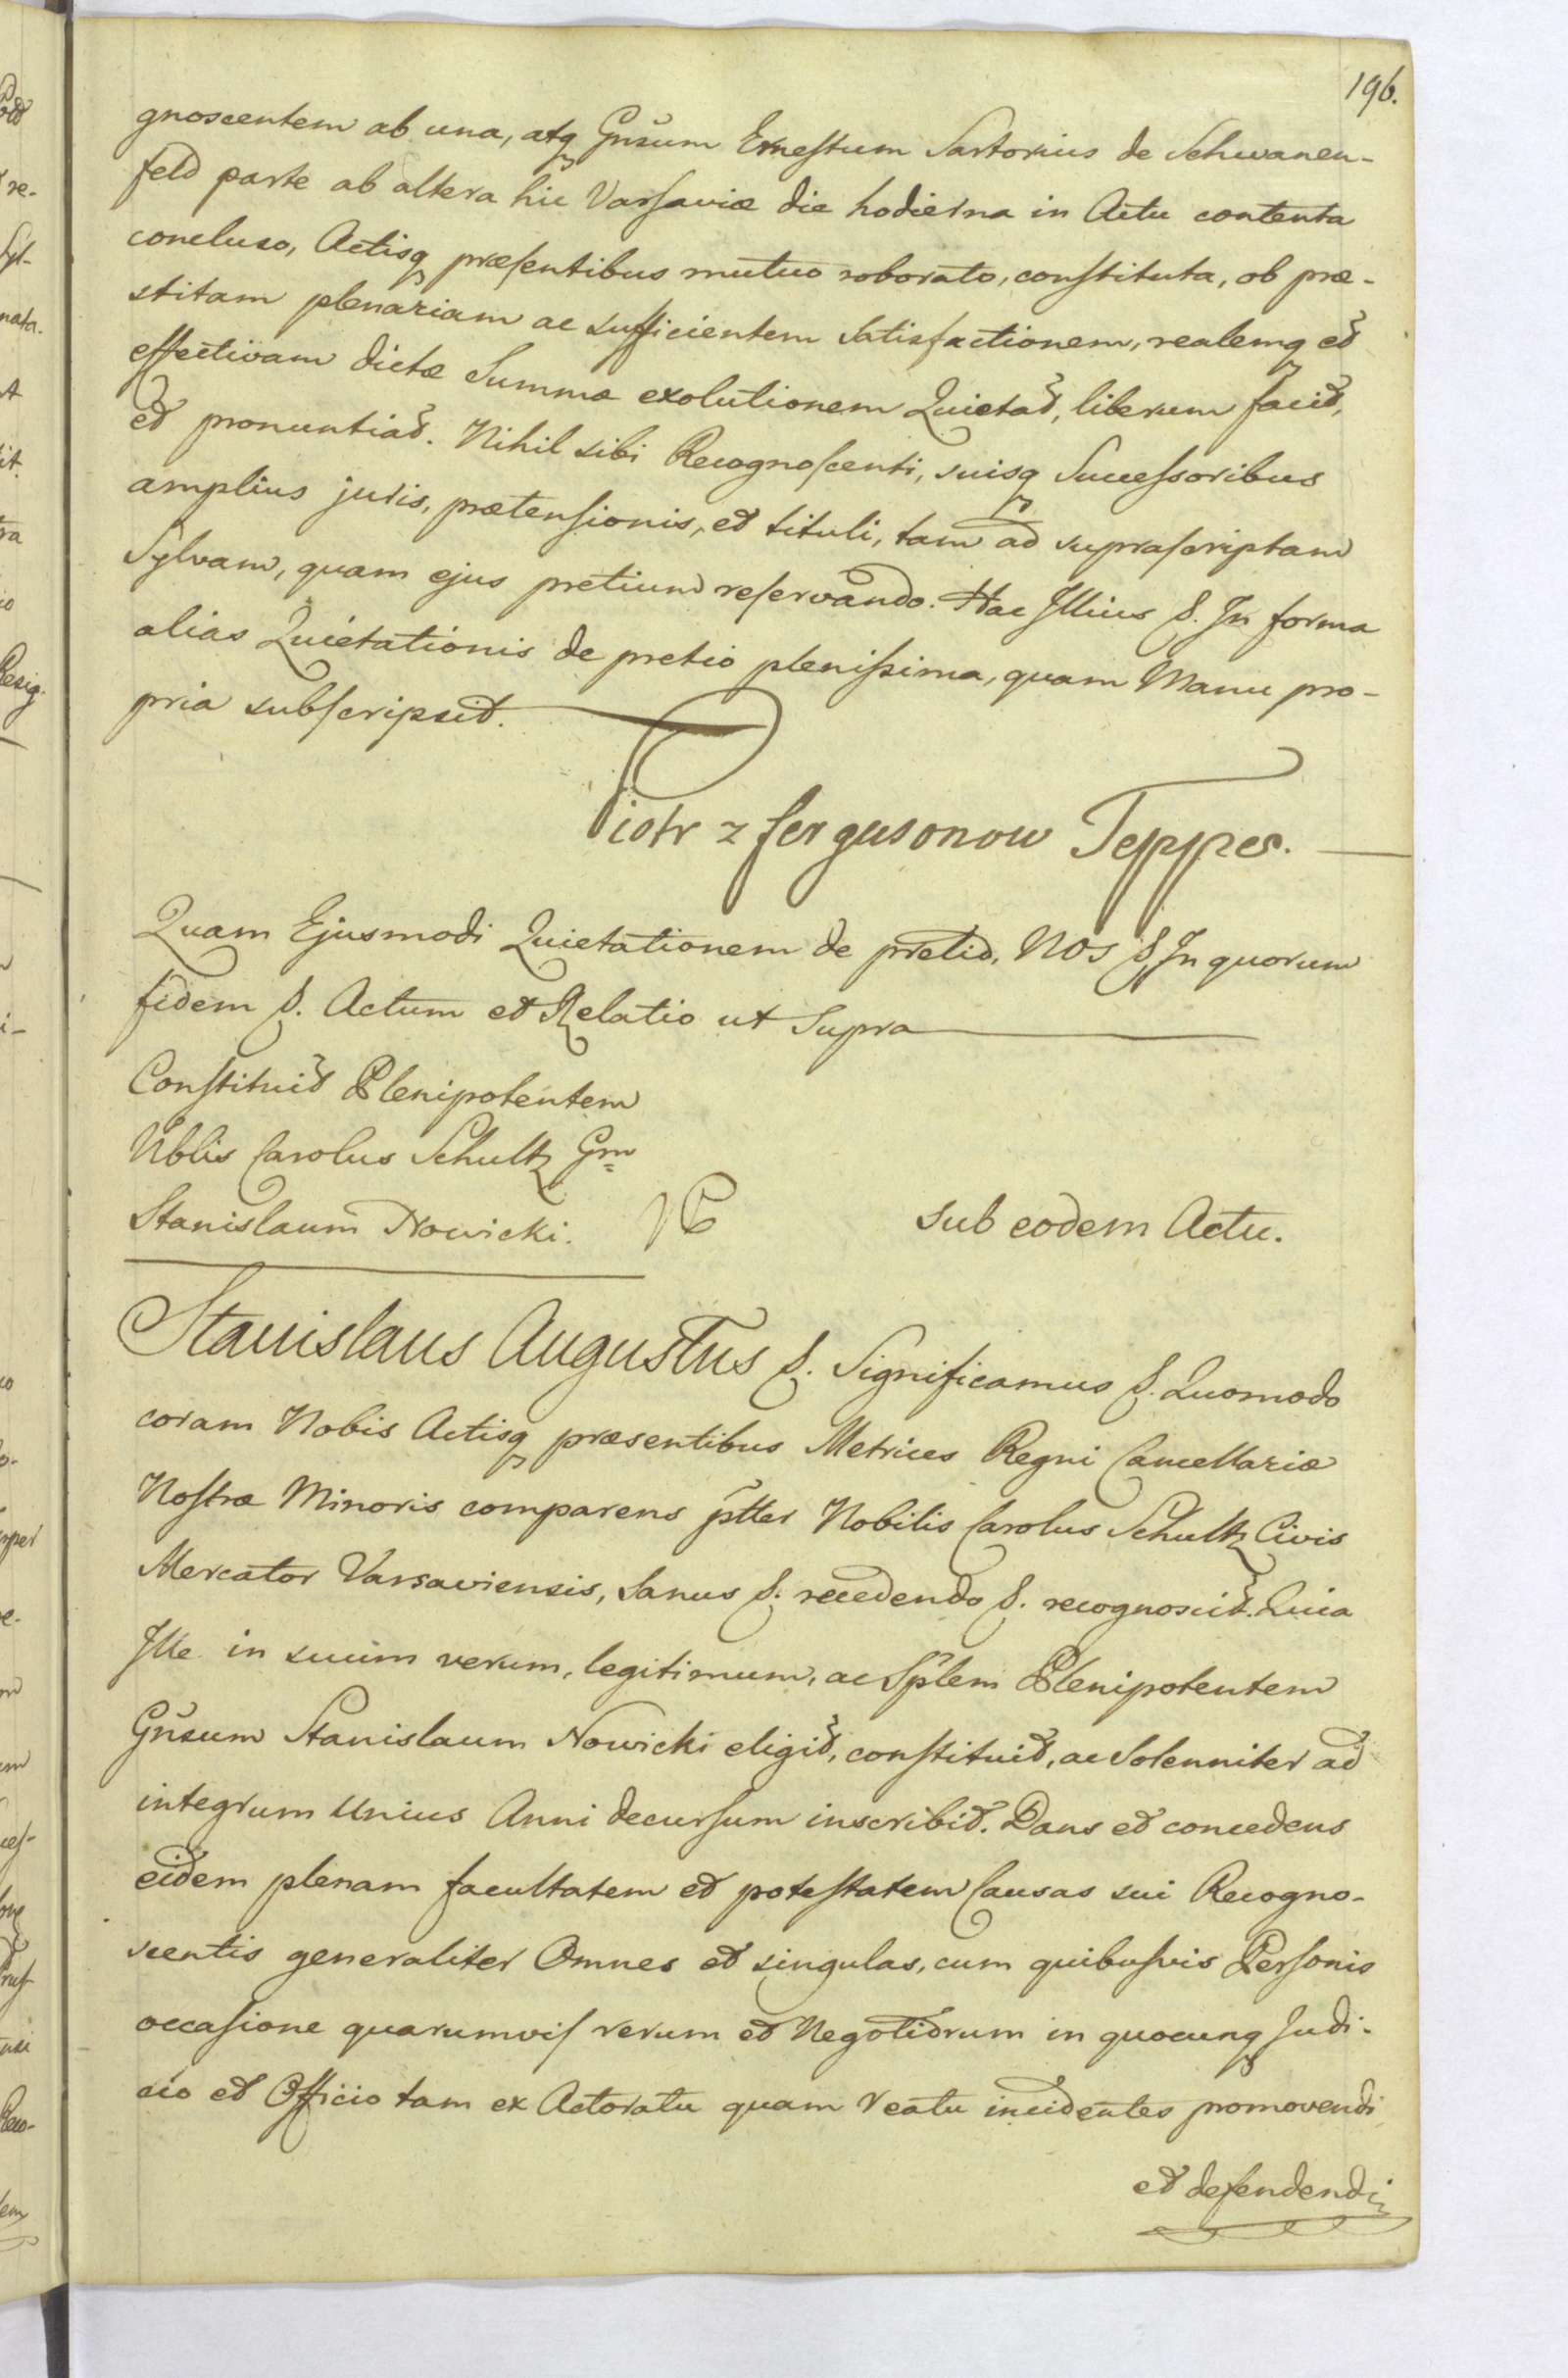 196.
gnoscentem ab una, atq Gñsum Ernestum Sartorius de Schwanen-
feld parte ab altera hic Varsaviæ die hodierna in Actu contenta
concluso, Actisq præsentibus mutuo roborato, constituta, ob præ-
stitam plenariam ac sufficientem Satisfactionem, realemq et
effectivam dictæ Summæ exolutionem Quietat, liberum facit,
et pronuntiat. Nihil sibi Recognoscenti, suisq Successoribus
amplius juris, prætensionis, et tituli, tam ad suprascriptam
Sylvam, quam ejus pretium reservando. Hac Illius &. In forma
alias Quietationis de pretio plenissima, quam Manu pro-
pria subscripsit.
Piotr z fergusonow Tepper.
Quam Ejusmodi Quietationem de pretio, Nos &. In quorum
fidem &. Actum et Relatio ut Supra
Constituit Plenipotentem
Nblis Carolus Schultz Gm
Stanislaum Nowicki.
sub eodem Actu.
Stanislaus Augustus &. Significamus &. Quomodo
coram Nobis Actisq præsentibus Metrices Regni Cancellariæ
Nostræ Minoris comparens pltter Nobilis Carolus Schultz Civis
Mercator Varsaviensis, Sanus &. recedendo &. recognoscit. Quia
Ille in suum verum, legitimum, ac Splem Plenipotentem
Gñsum Stanislaum Nowicki eligit, constituit, ac Solenniter ad
integrum Unius Anni decursum inscribit. Dans et concedens
eidem plenam facultatem et potestatem Causas sui Recogno-
scentis generaliter Omnes et singulas, cum quibusvis Personis
occasione quarumvis rerum et Negotiorum in quocunq Judi-
cio et Officio tam ex Actoratu quam reatu incidentes promovendi
et defendendi